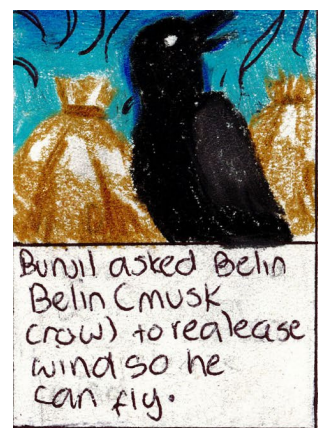 Bunjil asked Belin
Belin (musk
crow) to realease
wind so he
can fly.